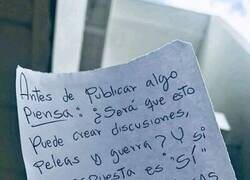 Antes de Publicar algo
Piensa: ¿Será que esto
Puede crear discusiones,
Peleas y guerra? Y si
respuesta es "Sí"